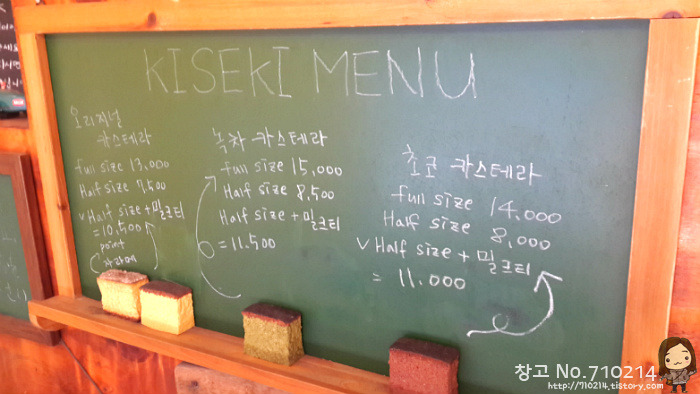 KISEKI MENU
오리지널
카스테라
full size 13,000
Half size 7,500
v Half size + 밀크티
= 10,500
point
녹차 카스테라
full size 15,000
Half size 8,500
Half size + 밀크티
= 11,500
초코 카스테라
full size 14,000
Half size 8,000
v Half size + 밀크티
= 11,000
창고 No.710214
http://710214.tistory.com/